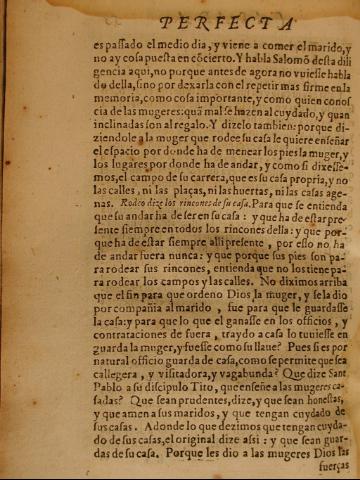 PERFECTA
es passado el medio dia, y viene a comer el marido, y
no ay cosa puesta en cōcierto. Y habla Salomō desta dili
gencia aqui, no porque antes de agora no vuiesse habla
do della, sino por dexarla con el repetir mas firme en la
memoria, como cosa importante, y como quien conos
cia de las mugeres: quā mal se hazen al cuydado, y quan
inclinadas son al regalo. Y dizelo tambien: porque di-
ziendole a la muger que rodee su casa le quiere enseñar
el espacio por donde ha de menear los pies la muger, y
los lugares por donde ha de andar, y como si dixesse-
mos, el campo de su carrera, que es su casa propria, y no
las calles, ni las plaças, ni las huertas, ni las casas age-
nas. Rodeo dize los rincones de su casa. Para que se entienda
que su andar ha de ser en su casa: y que ha de estar pre-
sente siempre en todos los rincones della: y que por-
que ha de estar siempre alli presente, por esso no ha
de andar fuera nunca: y que porque sus pies son pa-
ra rodear sus rincones, entienda que no los tiene pa-
ra rodear los campos y las calles. No diximos arriba
que el fin para que ordeno Dios la muger, y se la dio
por compañia al marido, fue para que le guardasse
la casa: y para que lo que el ganasse en los officios, y
contrataciones de fuera, traydo a casa lo tuuiesse en
guarda la muger, y fuesse como su llaue? Pues si es por
natural officio guarda de casa, como se permite que sea
callegera, y visitadora, y vagabunda? Que dize Sant
Pablo a su discipulo Tito, que enseñe a las mugeres ca-
sadas? Que sean prudentes, dize, y que sean honestas,
y que amen a sus maridos, y que tengan cuydado de
sus casas. Adonde lo que dezimos que tengan cuyda-
do de sus casas, el original dize assi: y que sean guar-
das de su casa. Porque les dio a las mugeres Dios las
fuerças